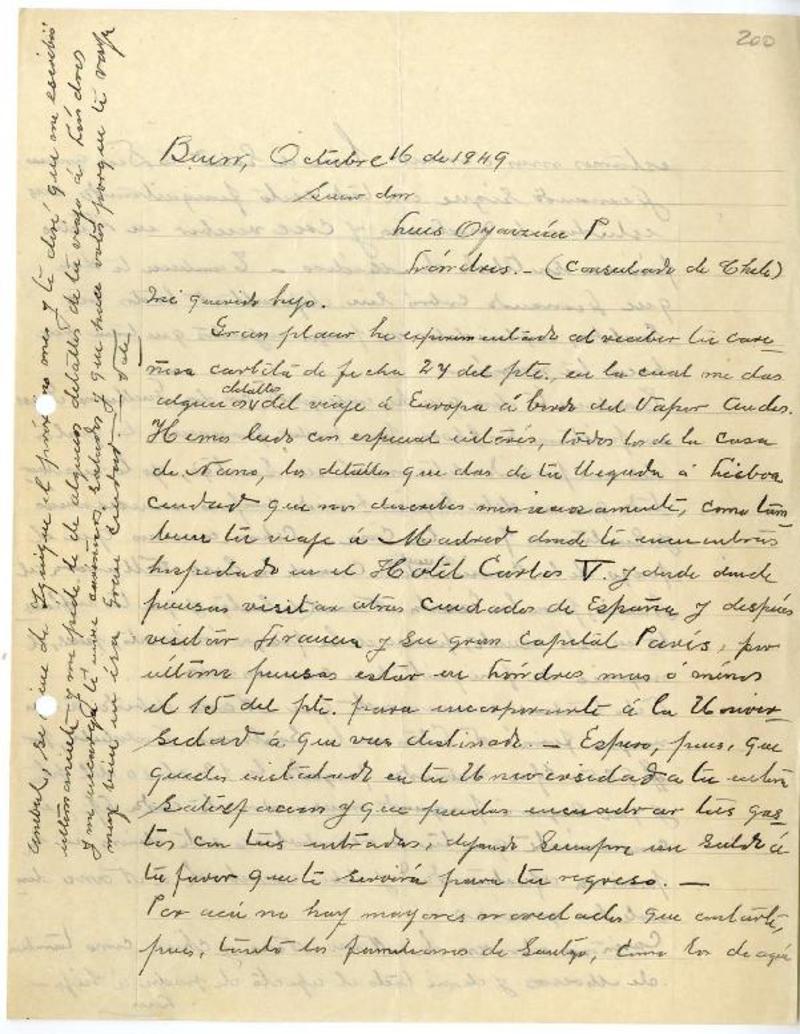 200
Buin, Octubre 16 de 1949
Señor don
Luis Oyarzún P
Lóndres. - (Consulado de Chile)
Mi querido hijo.
Gran placer he experimentado al recibir tu cari-
ñosa cartita de fecha 27 del pte., en la cual me das
algunos detalles del viaje á Europa á bordo del Vapor Andes.
Hemos leido con especial interés, todos los de la casa
de Nano, los detalles que das de tu llegada á Lisboa
ciudad que nos describes minuciosamente, como tam
bien tu viaje á Madrid donde te encuentras
hospedado en el Hotel Cárlos V. y desde donde
piensas visitar otras ciudades de España y después
visitar Francia y su gran capital París, por
último piensas estar en Lóndres mas ó ménos
el 15 del pte. para incorporarte á la Univer-
sidad á que vas destinado. — Espero, pues, que
quedes instalado en tu Universidad a tu entera
satisfaccion y que puedas encuadrar tus gas-
tos con tus entradas, dejando siempre un saldo á
tu favor que te servirá para tu regreso. —
Por acá no hay mayores novedades que contarte,
pues, tanto los familiares de Santgo, como los de aquí
Anibal, se viene de Iquique el próximo mes y te diré que me escribió
ultimamente y me pide le dé algunos detalles de tu viaje á Lóndres
y me encarga te envie cariñosos saludos y que hace votos porque te vaya
muy bien en ésa Gran Ciudad. — Vale